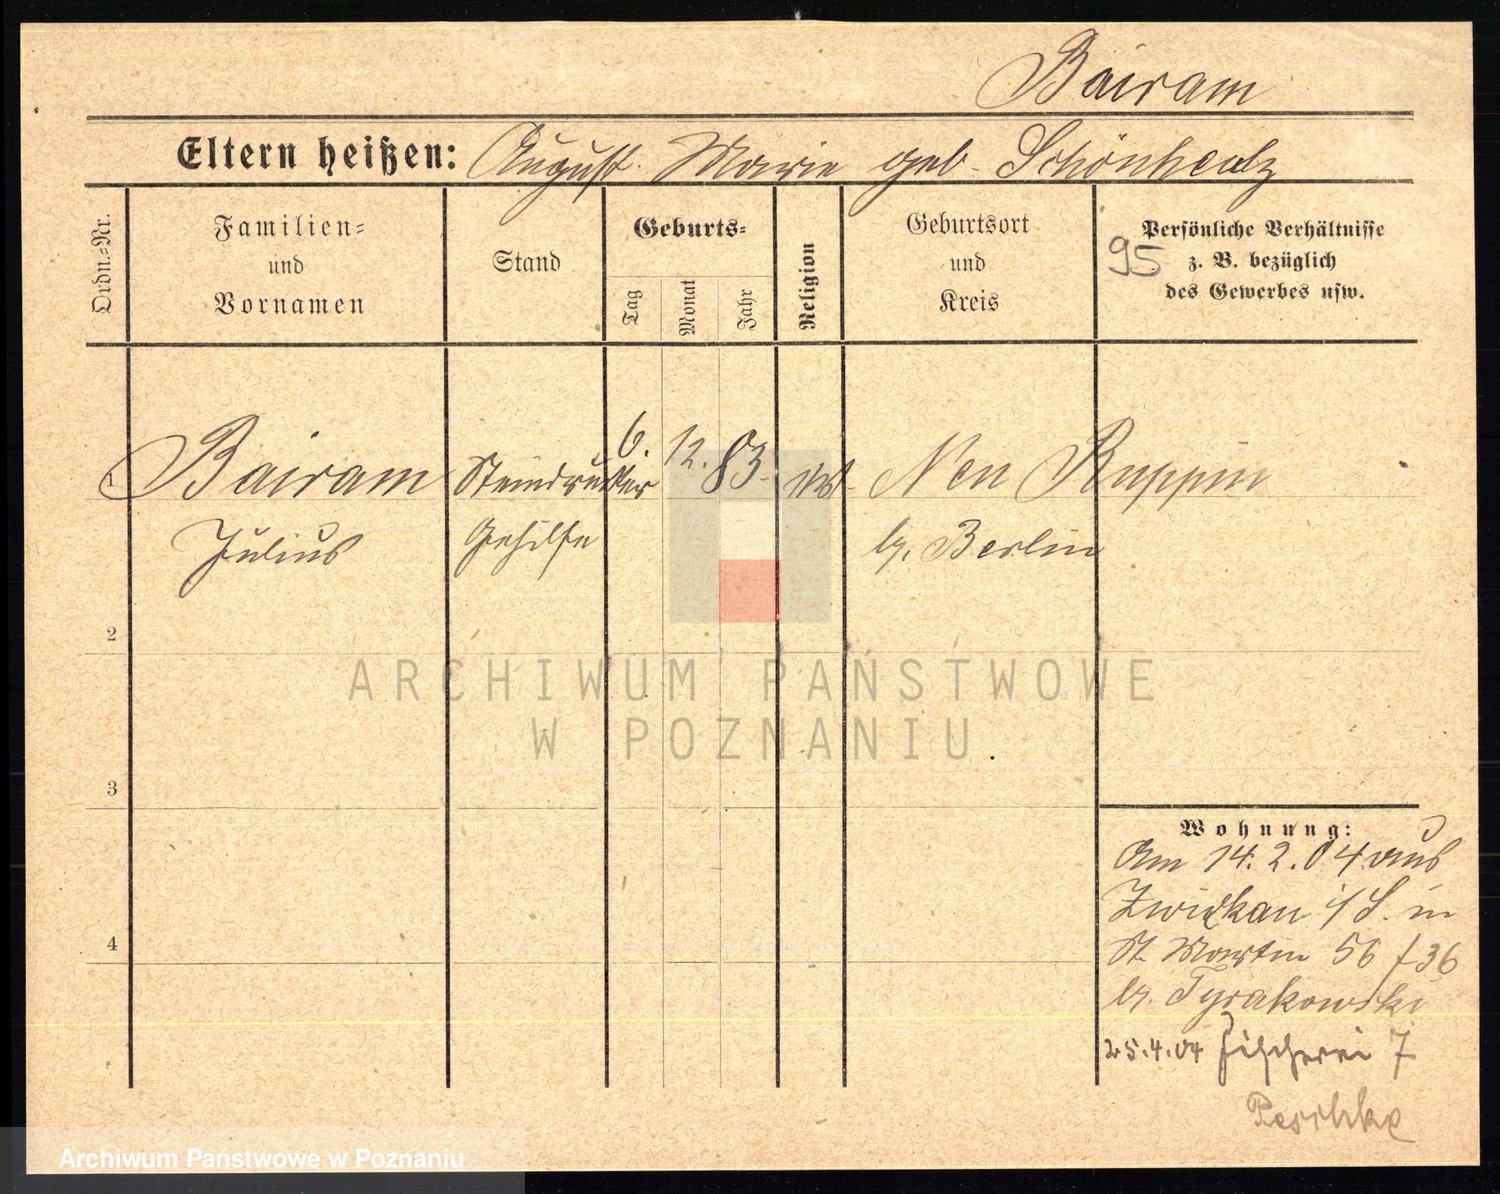 Bairam
Eltern heißen: August. Marie geb. Schönhealz
Ordn.-Nr.
Familien- und Vornamen
Stand
Geburts-
Tag
Monat
Jahr
Religion
Geburtsort und Kreis
Persönliche Verhältnisse
z. B. bezüglich
des Gewerbes usw.
95
1 Bairam Steindrucker 6. 12. 83. Neu Ruppin
Julius Gehilfe b. Berlin
2
3
4
Wohnung:
Am 14.2.04 aus
Zwickau i/S. in
St. Martin 56 f 36
b. Tyrakowski
25.4.04 Fischerei 7
Peschke
ARCHIWUM PAŃSTWOWE
W POZNANIU
Archiwum Państwowe w Poznaniu